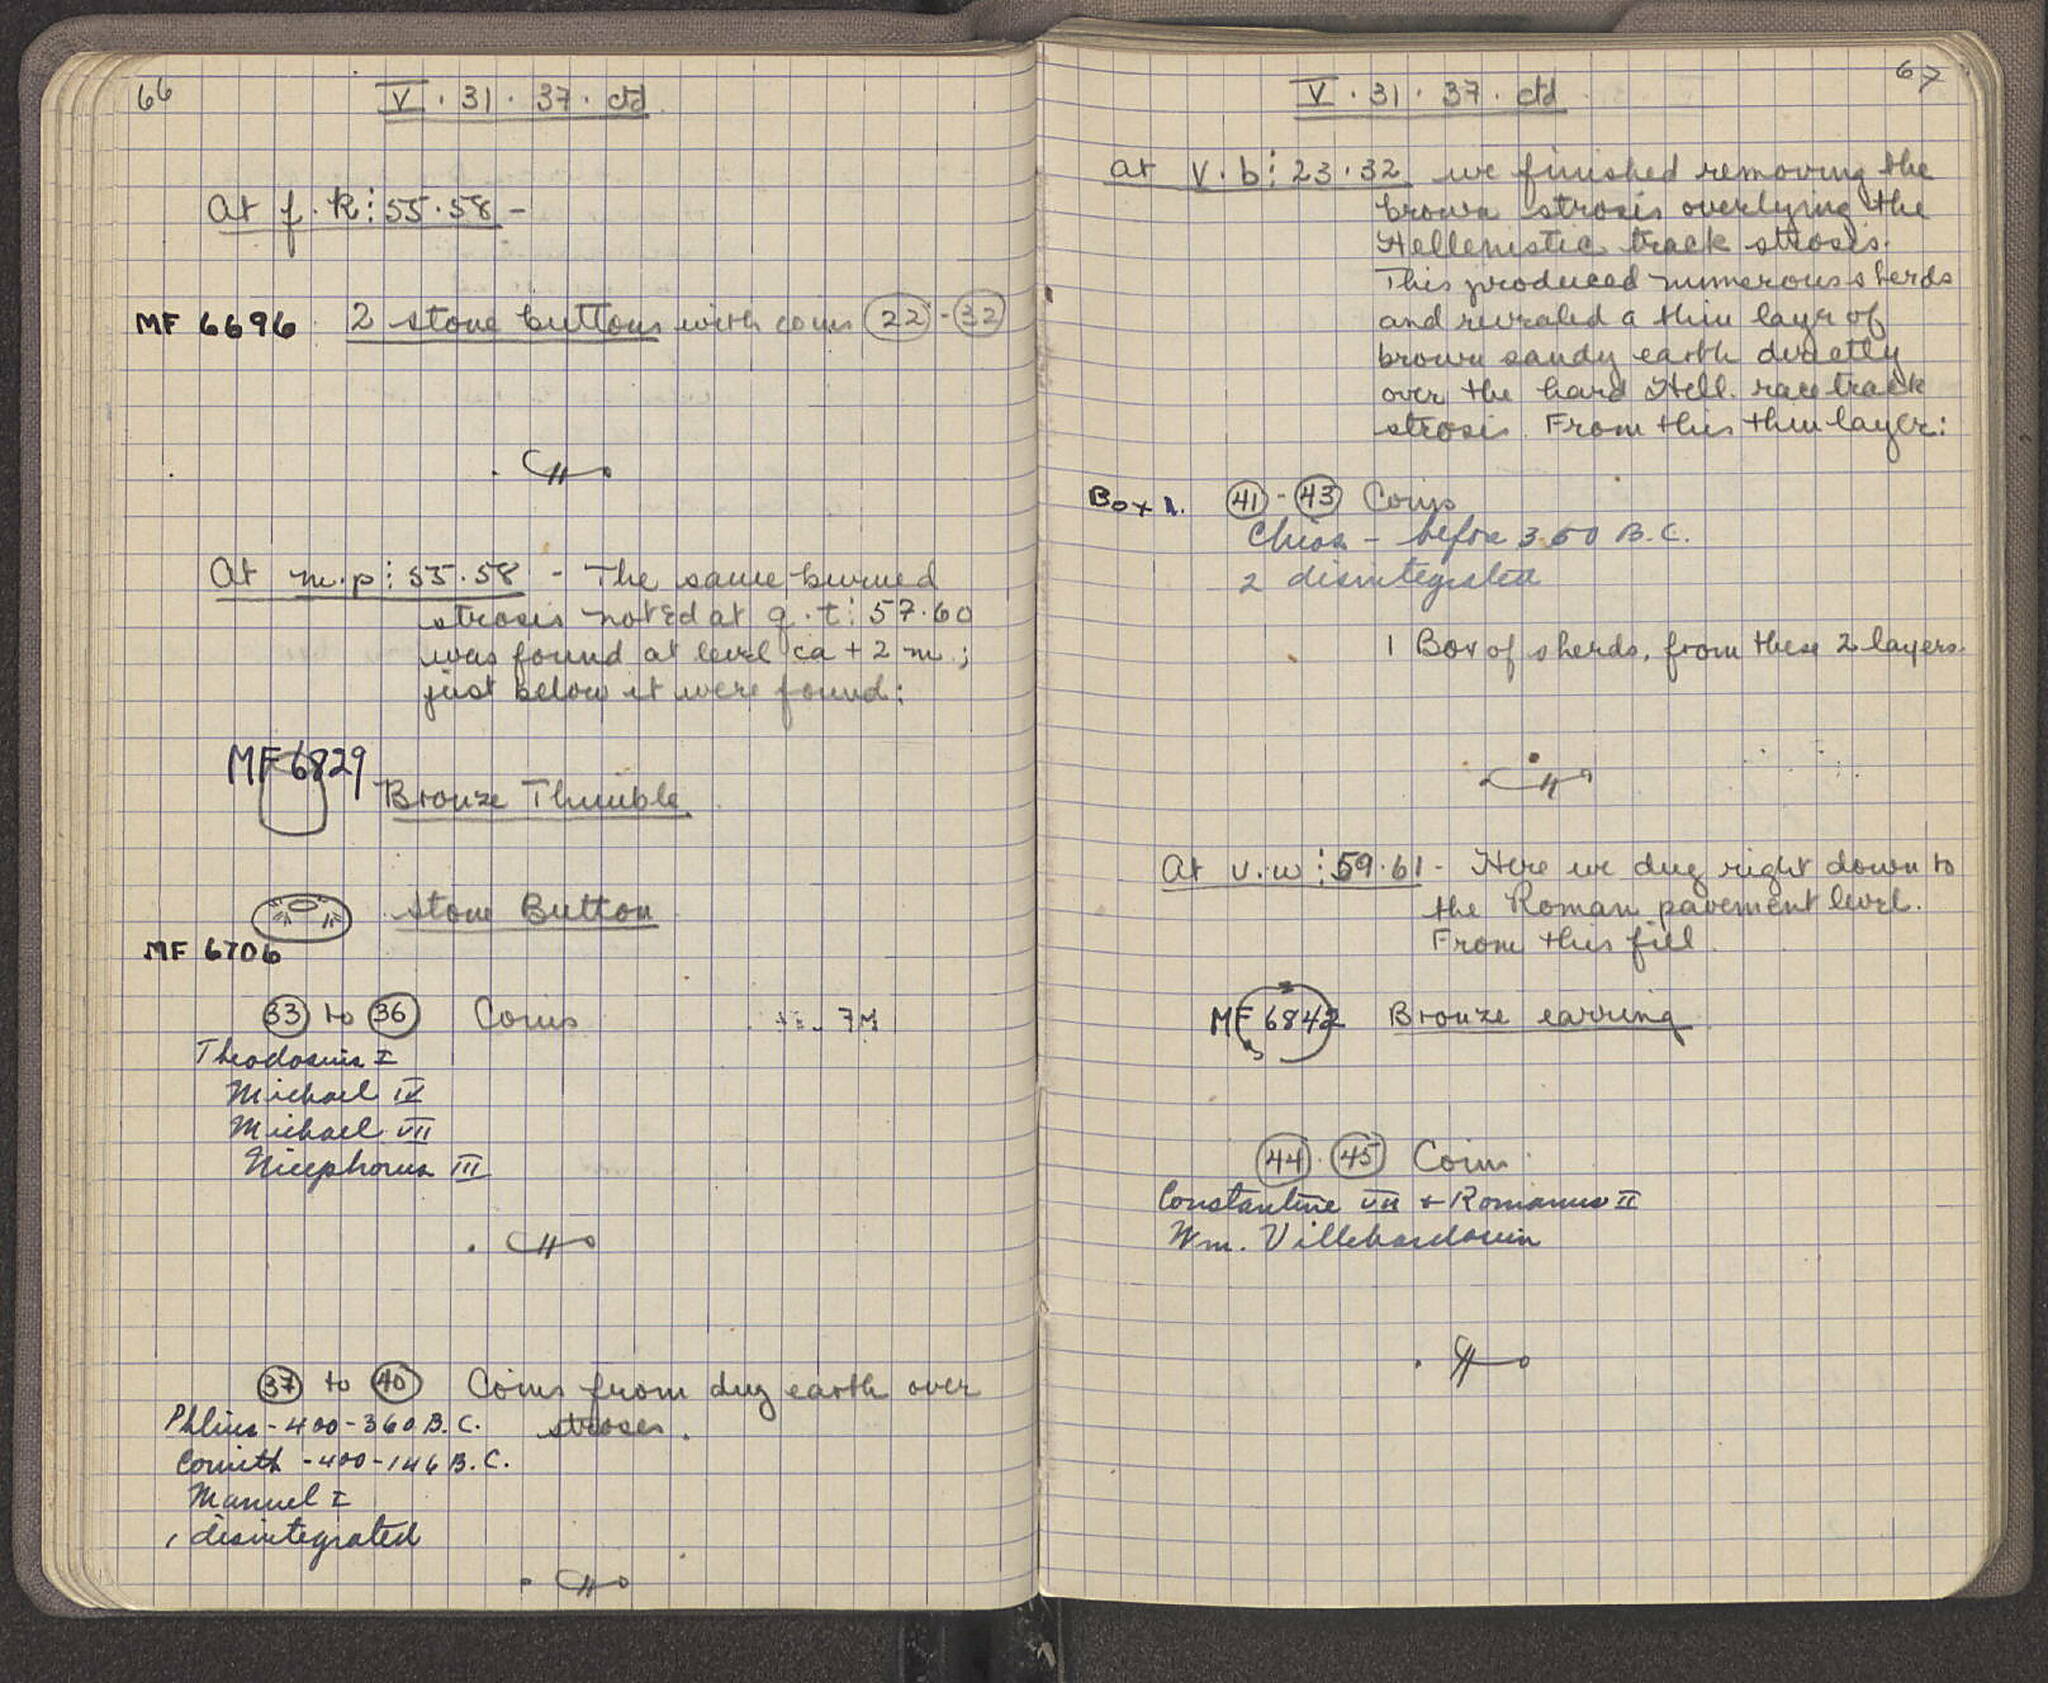 66
V . 31 . 37 . ctd
At f . k : 55 . 58 -
MF 6696 2 stone buttons with coins 22 - 32
At m . p : 55 . 58 - The same burned
strosis noted at q . t : 57 . 60
was found at level ca + 2 m ;
just below it were found :
MF 6829
Bronze Thimble
Stone Button
MF 6706
33 to 36 Coins
Theodosius I
Michael IV
Michael VII
Nicephorus III
37 to 40 Coins from dug earth over
Phlius - 400 - 360 B.C. stroses .
Corinth - 400 - 146 B.C.
Manuel I
1 disintegrated
67
V . 31 . 37 . ctd
At v . b : 23 . 32 we finished removing the
brown strosis overlying the
Hellenistic track strosis.
This produced numerous sherds
and revealed a thin layer of
brown sandy earth directly
over the hard Hell. race track
strosis. From this thin layer :
Box 1. 41 - 43 Coins
Chios - before 350 B.C.
2 disintegrated
1 Box of sherds, from these 2 layers
At v . w : 59 . 61 - Here we dug right down to
the Roman pavement level.
From this fill
MF 6842 Bronze earring
44 . 45 Coins
Constantine VII + Romanus II
Wm. Villehardouin